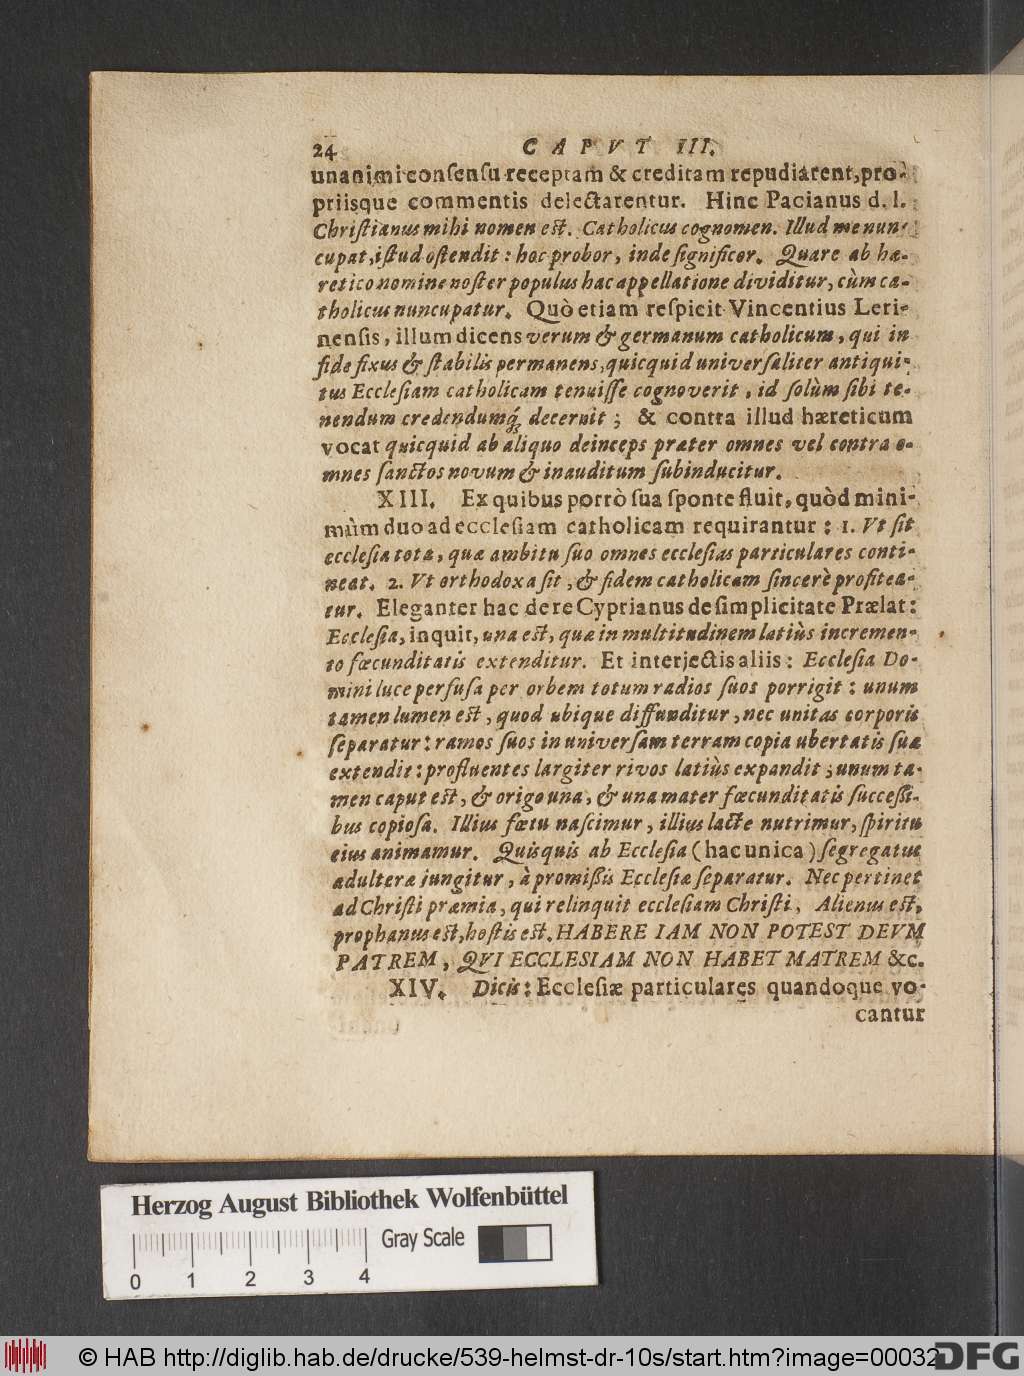 24 CAPVT III.
unanimi consensu receptam & creditam repudiarent, pro-
priisque commentis delectarentur. Hinc Pacianus d. l.
Christianus mihi nomen est. Catholicus cognomen. Illud me nun-
cupat, istud ostendit: hoc probor, inde significor. Quare ab hæ-
retico nomine noster populus hac appellatione dividitur, cùm ca-
tholicus nuncupatur. Quò etiam respicit Vincentius Leri-
nensis, illum dicens verum & germanum catholicum, qui in
fide fixus & stabilis permanens, quicquid universaliter antiqui-
tus Ecclesiam catholicam tenuisse cognoverit, id solùm sibi te-
nendum credendumq; decernit; & contra illud hæreticum
vocat quicquid ab aliquo deinceps præter omnes vel contra o-
mnes sanctos novum & inauditum subinducitur.
XIII. Ex quibus porrò sua sponte fluit, quòd mini-
mùm duo ad ecclesiam catholicam requirantur: 1. Vt sit
ecclesia tota, quæ ambitu suo omnes ecclesias particulares conti-
neat. 2. Vt orthodoxa sit, & fidem catholicam sincerè profitea-
tur. Eleganter hac de re Cyprianus de simplicitate Prælat:
Ecclesia, inquit, una est, quæ in multitudinem latiùs incremen-
to fœcunditatis extenditur. Et interjectis aliis: Ecclesia Do-
mini luce perfusa per orbem totum radios suos porrigit: unum
tamen lumen est, quod ubique diffunditur, nec unitas corporis
separatur: ramos suos in universam terram copia ubertatis suæ
extendit: profluentes largiter rivos latiùs expandit; unum ta-
men caput est, & origo una, & una mater fœcunditatis successi-
bus copiosa. Illius fœtu nascimur, illius lacte nutrimur, spiritu
eius animamur. Quisquis ab Ecclesia (hac unica) segregatus
adulteræ jungitur, à promißis Ecclesiæ separatur. Nec pertinet
ad Christi præmia, qui relinquit ecclesiam Christi, Alienus est,
prophanus est, hostis est. HABERE IAM NON POTEST DEVM
PATREM, QVI ECCLESIAM NON HABET MATREM &c.
XIV. Dicis: Ecclesiæ particulares quandoque vo-
cantur
Herzog August Bibliothek Wolfenbüttel
Gray Scale
0 1 2 3 4
© HAB http://diglib.hab.de/drucke/539-helmst-dr-10s/start.htm?image=00032
DFG